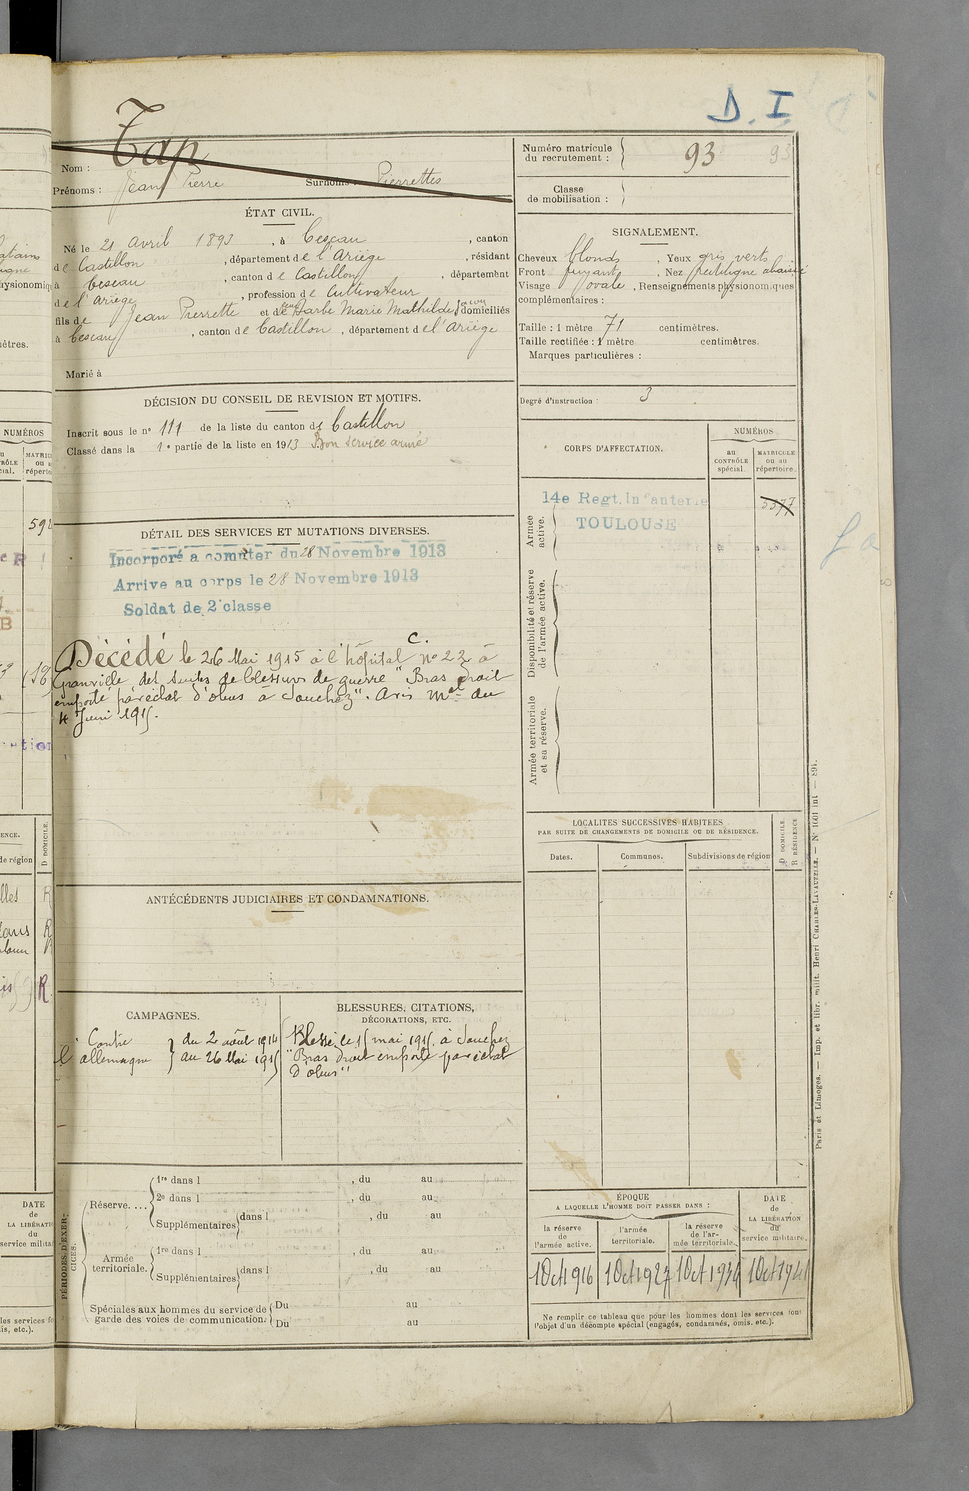 D. I
Tap
Nom :
Prénoms : Jean Pierre Surnoms : Pierrettes
Numéro matricule
du recrutement : 93
Classe
de mobilisation :
ÉTAT CIVIL.
Né le 21 avril 1893, à Cescau, canton
de Castillon, département de l'Ariège, résidant
à Cescau, canton de Castillon, département
de l'Ariège, profession de Cultivateur
fils de Jean Pierrette et de Darbe Marie Mathilde domiciliés
à Cescau, canton de Castillon, département de l'Ariège
Marié à
SIGNALEMENT.
Cheveux blonds, Yeux gris verts
Front fuyant, Nez rectiligne abaissé
Visage ovale, Renseignements physionomiques
complémentaires :
Taille : 1 mètre 71 centimètres.
Taille rectifiée : 1 mètre centimètres.
Marques particulières :
Degré d'instruction : 3
DÉCISION DU CONSEIL DE REVISION ET MOTIFS.
Inscrit sous le n° 111 de la liste du canton de Castillon
Classé dans la 1e partie de la liste en 1913 Bon service armé
CORPS D'AFFECTATION.
NUMÉROS
au
CONTRÔLE
spécial.
MATRICULE
ou au
répertoire.
14e Regt. Infanterie
TOULOUSE
5377
Armée
active.
Disponibilité et réserve
de l'armée active.
Armée territoriale
et sa réserve.
DÉTAIL DES SERVICES ET MUTATIONS DIVERSES.
Incorporé à compter du 28 Novembre 1913
Arrive au corps le 28 Novembre 1913
Soldat de 2e classe
Décédé le 26 Mai 1915 à l'hôpital C. n° 22 à
Granville des suites de blessures de guerre "Bras droit
emporté par éclat d'obus à Souchez". Avis Mel du
4 Juin 1915.
LOCALITÉS SUCCESSIVES HABITÉES
PAR SUITE DE CHANGEMENTS DE DOMICILE OU DE RÉSIDENCE.
Dates.
Communes.
Subdivisions de région
D DOMICILE.
R RÉSIDENCE
ANTÉCÉDENTS JUDICIAIRES ET CONDAMNATIONS.
CAMPAGNES.
Contre
l'allemagne
du 2 août 1914
au 26 Mai 1915
BLESSURES, CITATIONS,
DÉCORATIONS, ETC.
Blessé le 15 mai 1915 à Souchez
"Bras droit emporté par éclat
d'obus"
PÉRIODES D'EXERCICES.
Réserve....
1re dans l , du au
2e dans l , du au
Supplémentaires dans l , du au
Armée
territoriale.
1re dans l , du au
Supplémentaires dans l , du au
Spéciales aux hommes du service de
garde des voies de communication.
Du au
Du au
ÉPOQUE
A LAQUELLE L'HOMME DOIT PASSER DANS :
la réserve
de
l'armée active.
l'armée
territoriale.
la réserve
de l'ar-
mée territoriale.
DATE
de
LA LIBÉRATION
du
service militaire.
1 Oct 1916
1 Oct 1927
1 Oct 1934
1 Oct 1941
Ne remplir ce tableau que pour les hommes dont les services font
l'objet d'un décompte spécial (engagés, condamnés, omis, etc.).
Paris et Limoges. — Imp. et libr. milit. Henri CHARLES-LAVAUZELLE. — N° 1601 int — 894.